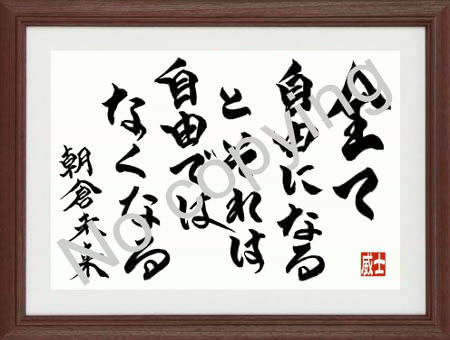 全て
自由になる
とそれは
自由では
なくなる
朝倉未来
威士
No copying